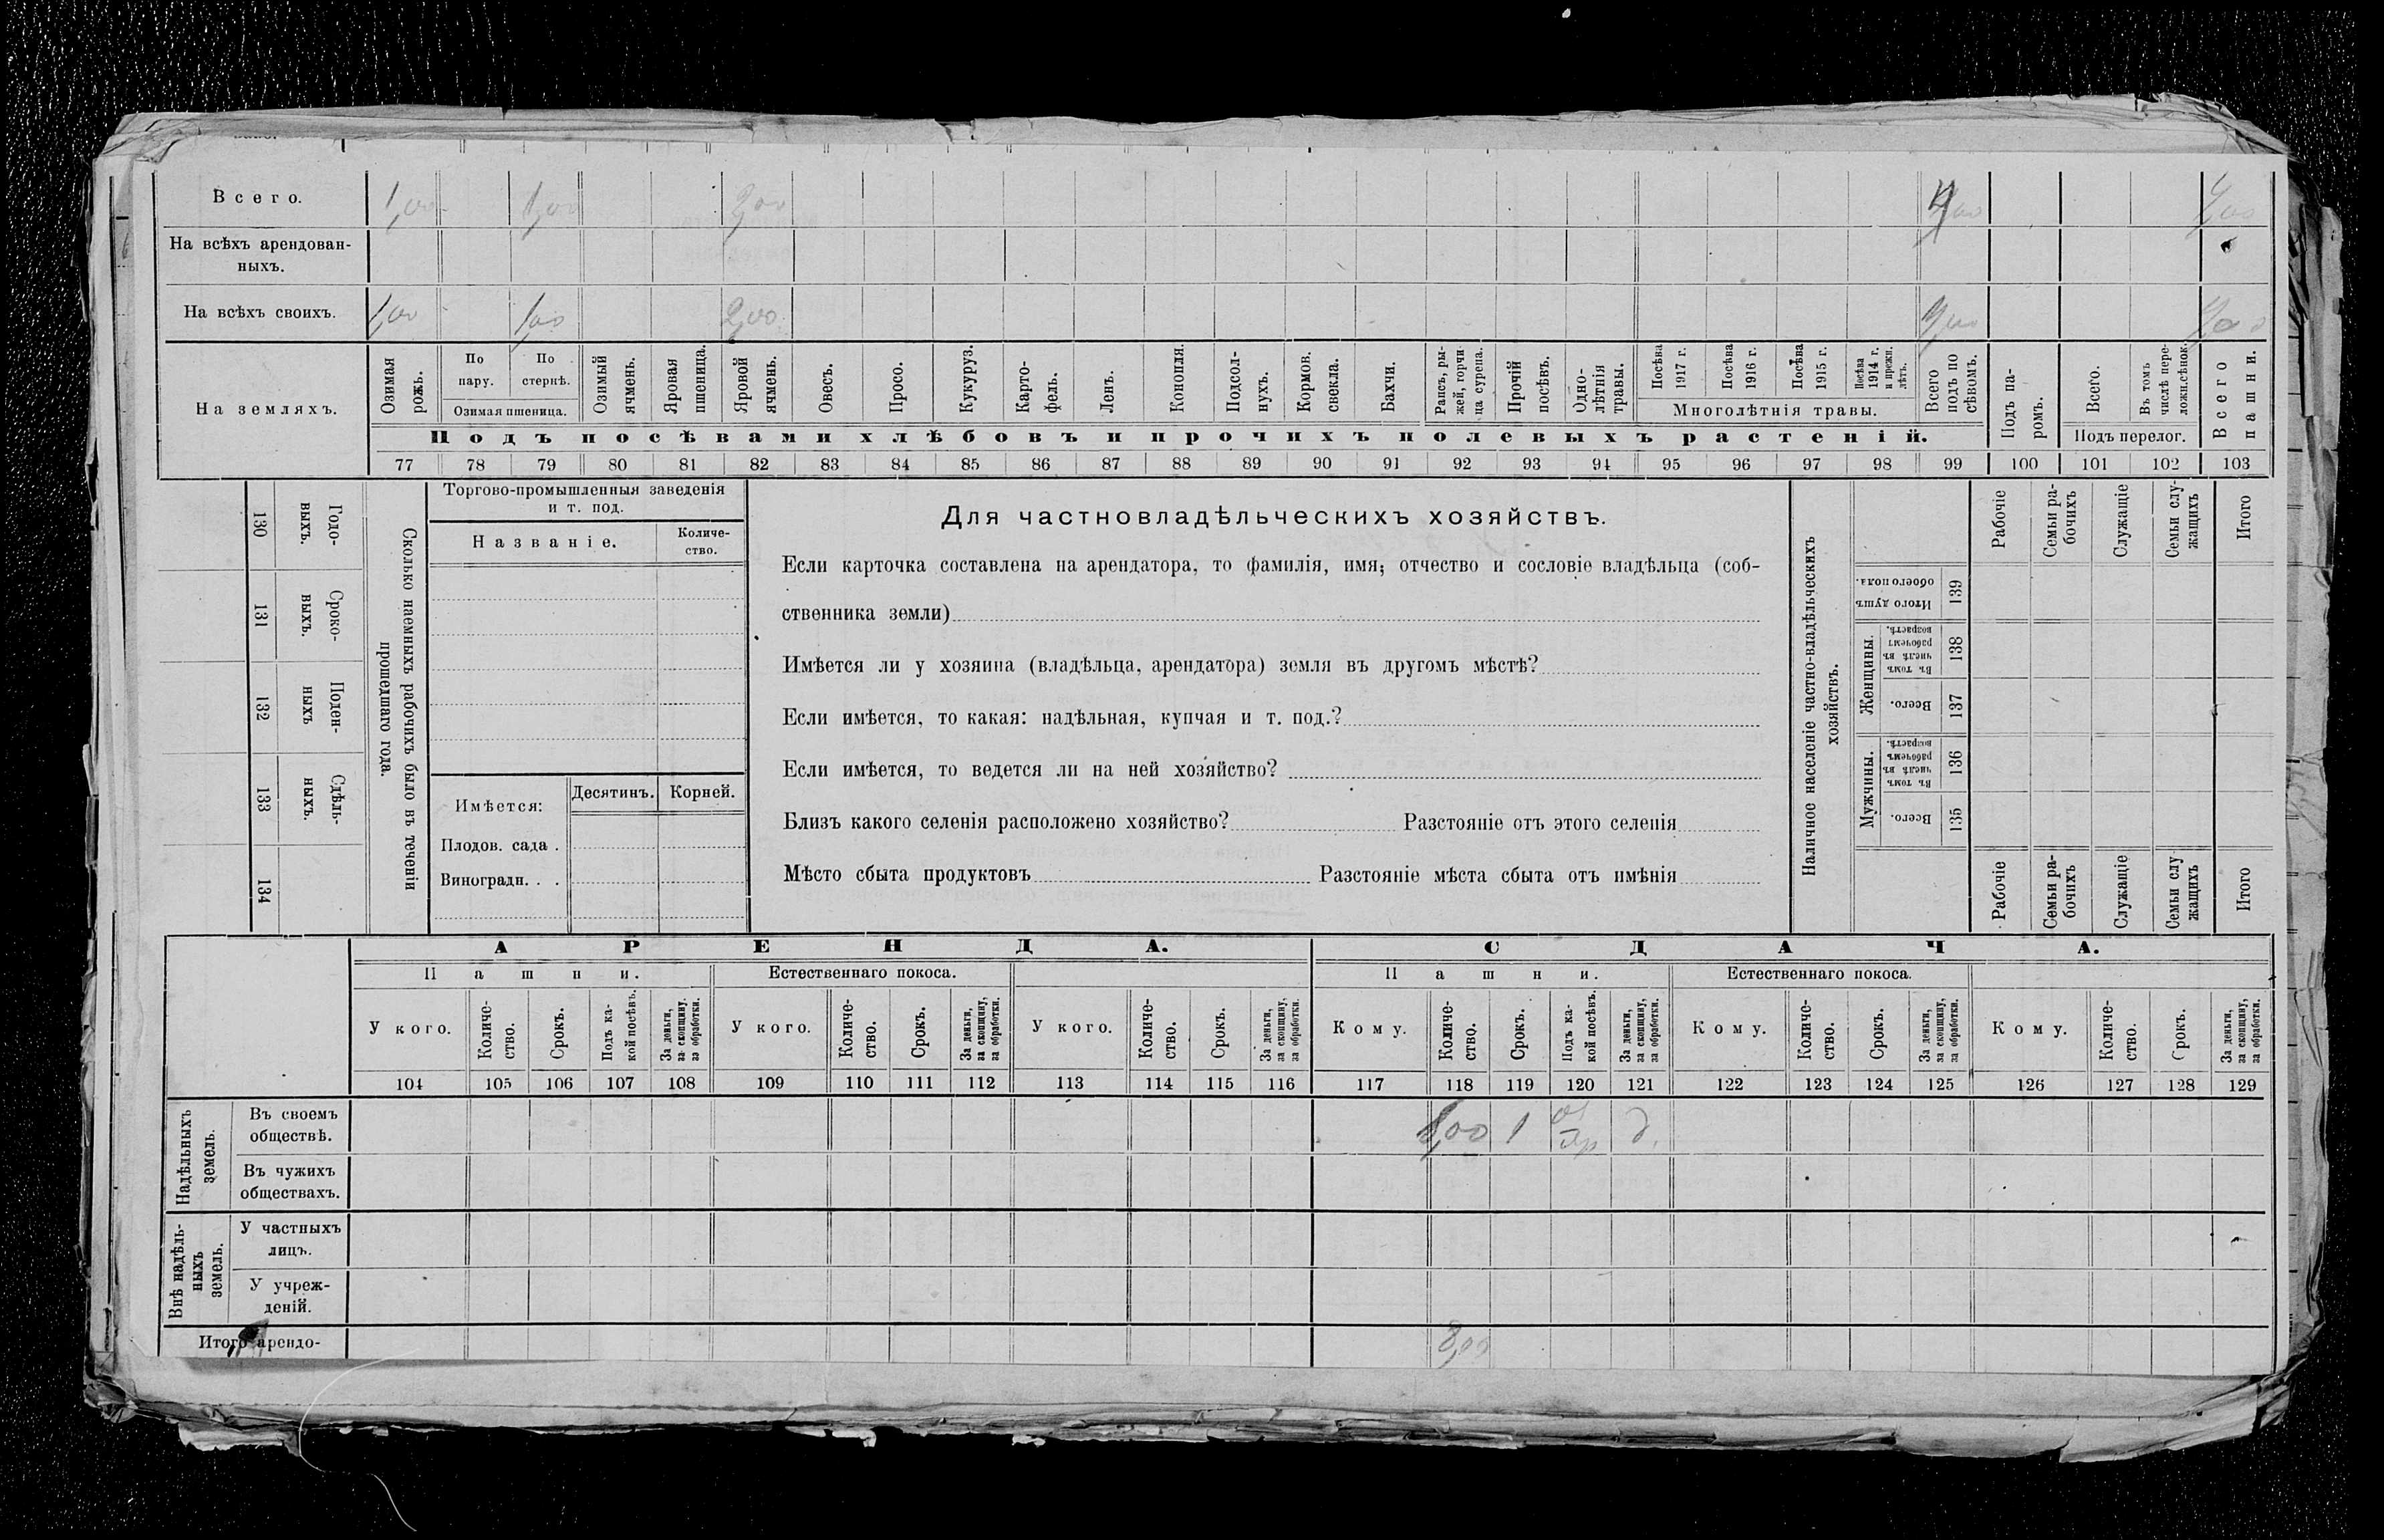 Всего. 1,00 1,00 2,00 4,00
На всѣхъ арендован-
ныхъ.
На всѣхъ своихъ. 1,00 1,00 2,00
На земляхъ.
Озимая рожь.
По пару.
По стернѣ.
Озимая пшеница.
Озимый ячмень.
Яровая пшеница.
Яровой ячмень.
Овесъ.
Просо.
Кукуруз.
Карто-
фель.
Ленъ.
Конопля.
Подсол-
нухъ.
Кормов.
свекла.
Бахчи.
Рапсъ, ры-
жей, горчи
ца сурепа.
Прочій
посѣвъ.
Одно-
лѣтнія
травы.
Посѣва
1917 г.
Посѣва
1916 г.
Посѣва
1915 г.
Посѣва
1914 г.
и прежн.
лѣтъ.
Многолѣтнія травы.
Всего
подъ по
сѣвомъ.
Подъ па-
ромъ.
Всего.
Въ томъ
числѣ пере-
ложн.сѣнок.
Подъ перелог.
Всего
пашни.
Подъ посѣвами хлѣбовъ и прочихъ полевыхъ растеній.
77 78 79 80 81 82 83 84 85 86 87 88 89 90 91 92 93 94 95 96 97 98 99 100 101 102 103
130 Годо-
ныхъ.
131 Сроко-
выхъ.
132 Поден-
ныхъ
133 Сдѣль-
ныхъ.
134
Сколько наемныхъ рабочихъ было въ теченіи
прошедшаго года.
Торгово-промышленныя заведенія
и т. под.
Названіе.
Количе-
ство.
Имѣется: Десятинъ. Корней.
Плодов. сада .
Виноградн. . .
Для частновладѣльческихъ хозяйствъ.
Если карточка составлена на арендатора, то фамилія, имя, отчество и сословіе владѣльца (соб-
ственника земли)
Имѣется ли у хозяина (владѣльца, арендатора) земля въ другомъ мѣстѣ?
Если имѣется, то какая: надѣльная, купчая и т. под.?
Если имѣется, то ведется ли на ней хозяйство?
Близъ какого селенія расположено хозяйство? Разстояніе отъ этого селенія
Мѣсто сбыта продуктовъ Разстояніе мѣста сбыта отъ имѣнія
Наличное населеніе частно-владѣльческихъ
хозяйствъ.
Рабочіе
Семьи ра-
бочихъ
Служащіе
Семьи слу-
жащихъ
Итого
Итого душъ
обоего пола.
139
Женщины.
Въ томъ
числѣ въ
рабочемъ
возрастѣ.
138
Всего.
137
Мужчины.
Въ томъ
числѣ въ
рабочемъ
возрастѣ.
136
Всего.
135
Рабочіе
Семьи ра-
бочихъ
Служащіе
Семьи слу
жащихъ
Итого
АРЕНДА. СДАЧА.
Пашни. Естественнаго покоса. Пашни. Естественнаго покоса.
У кого.
Количе-
ство.
Срокъ.
Подъ ка-
кой посѣвъ.
За деньги,
за скопщину,
за обработки.
У кого.
Количе-
ство.
Срокъ.
За деньги,
за скопщину,
за обработки.
У кого.
Количе-
ство.
Срокъ.
За деньги,
за скопщину,
за обработки.
Кому.
Количе-
ство.
Срокъ.
Подъ ка-
кой посѣвъ.
За деньги,
за скопщину,
за обработки.
Кому.
Количе-
ство.
Срокъ.
За деньги,
за скопщину,
за обработки.
Кому.
Количе-
ство.
Срокъ.
За деньги,
за скопщину,
за обработки.
104 105 106 107 108 109 110 111 112 113 114 115 116 117 118 119 120 121 122 123 124 125 126 127 128 129
Надѣльныхъ
земель.
Въ своемъ
обществѣ. 1 д.
Въ чужихъ
обществахъ.
Внѣ надѣль-
ныхъ
земель.
У частныхъ
лицъ.
У учреж-
деній.
Итого арендо- 8,00